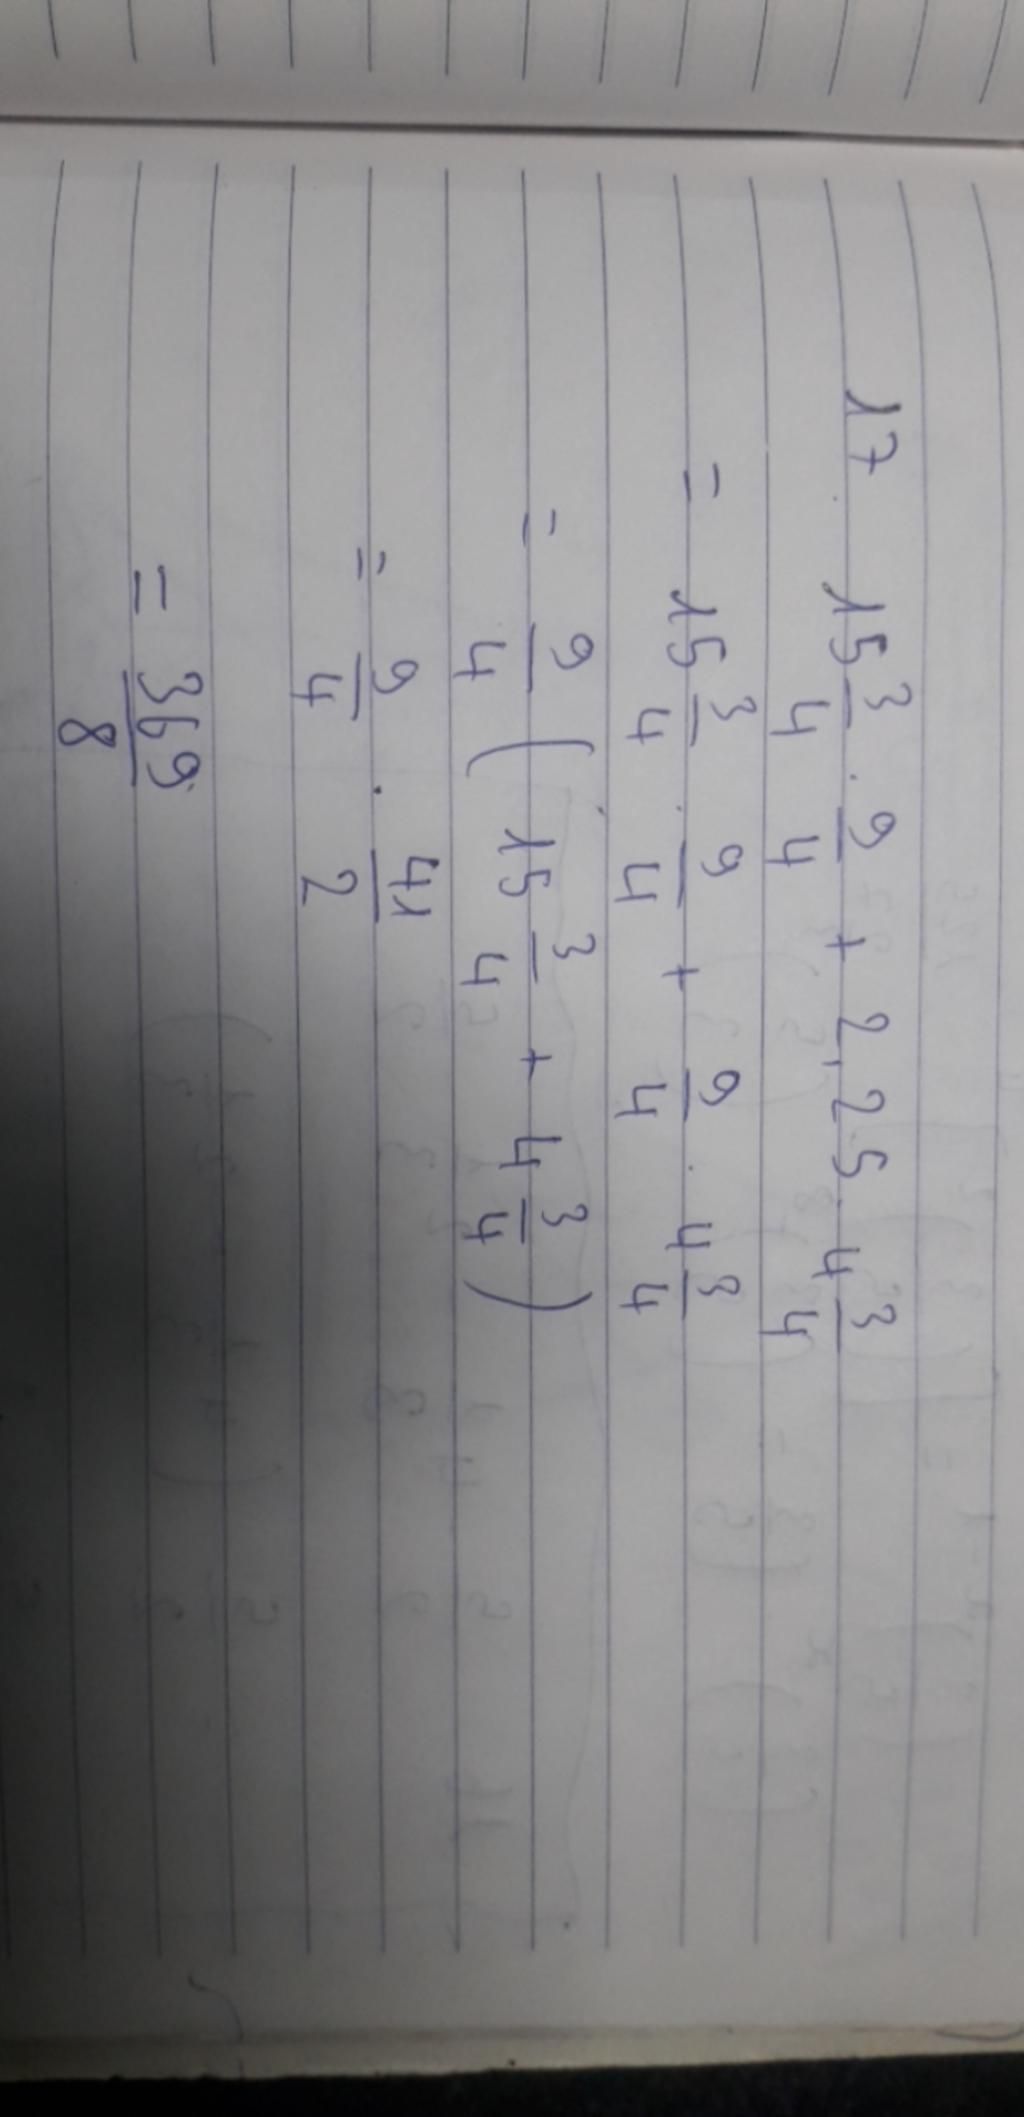 17. 15 3/4 . 9/4 + 2,25. 4 3/4
= 15 3/4 . 9/4 + 9/4 . 4 3/4
= 9/4 ( 15 3/4 + 4 3/4 )
= 9/4 . 41/2
= 369/8